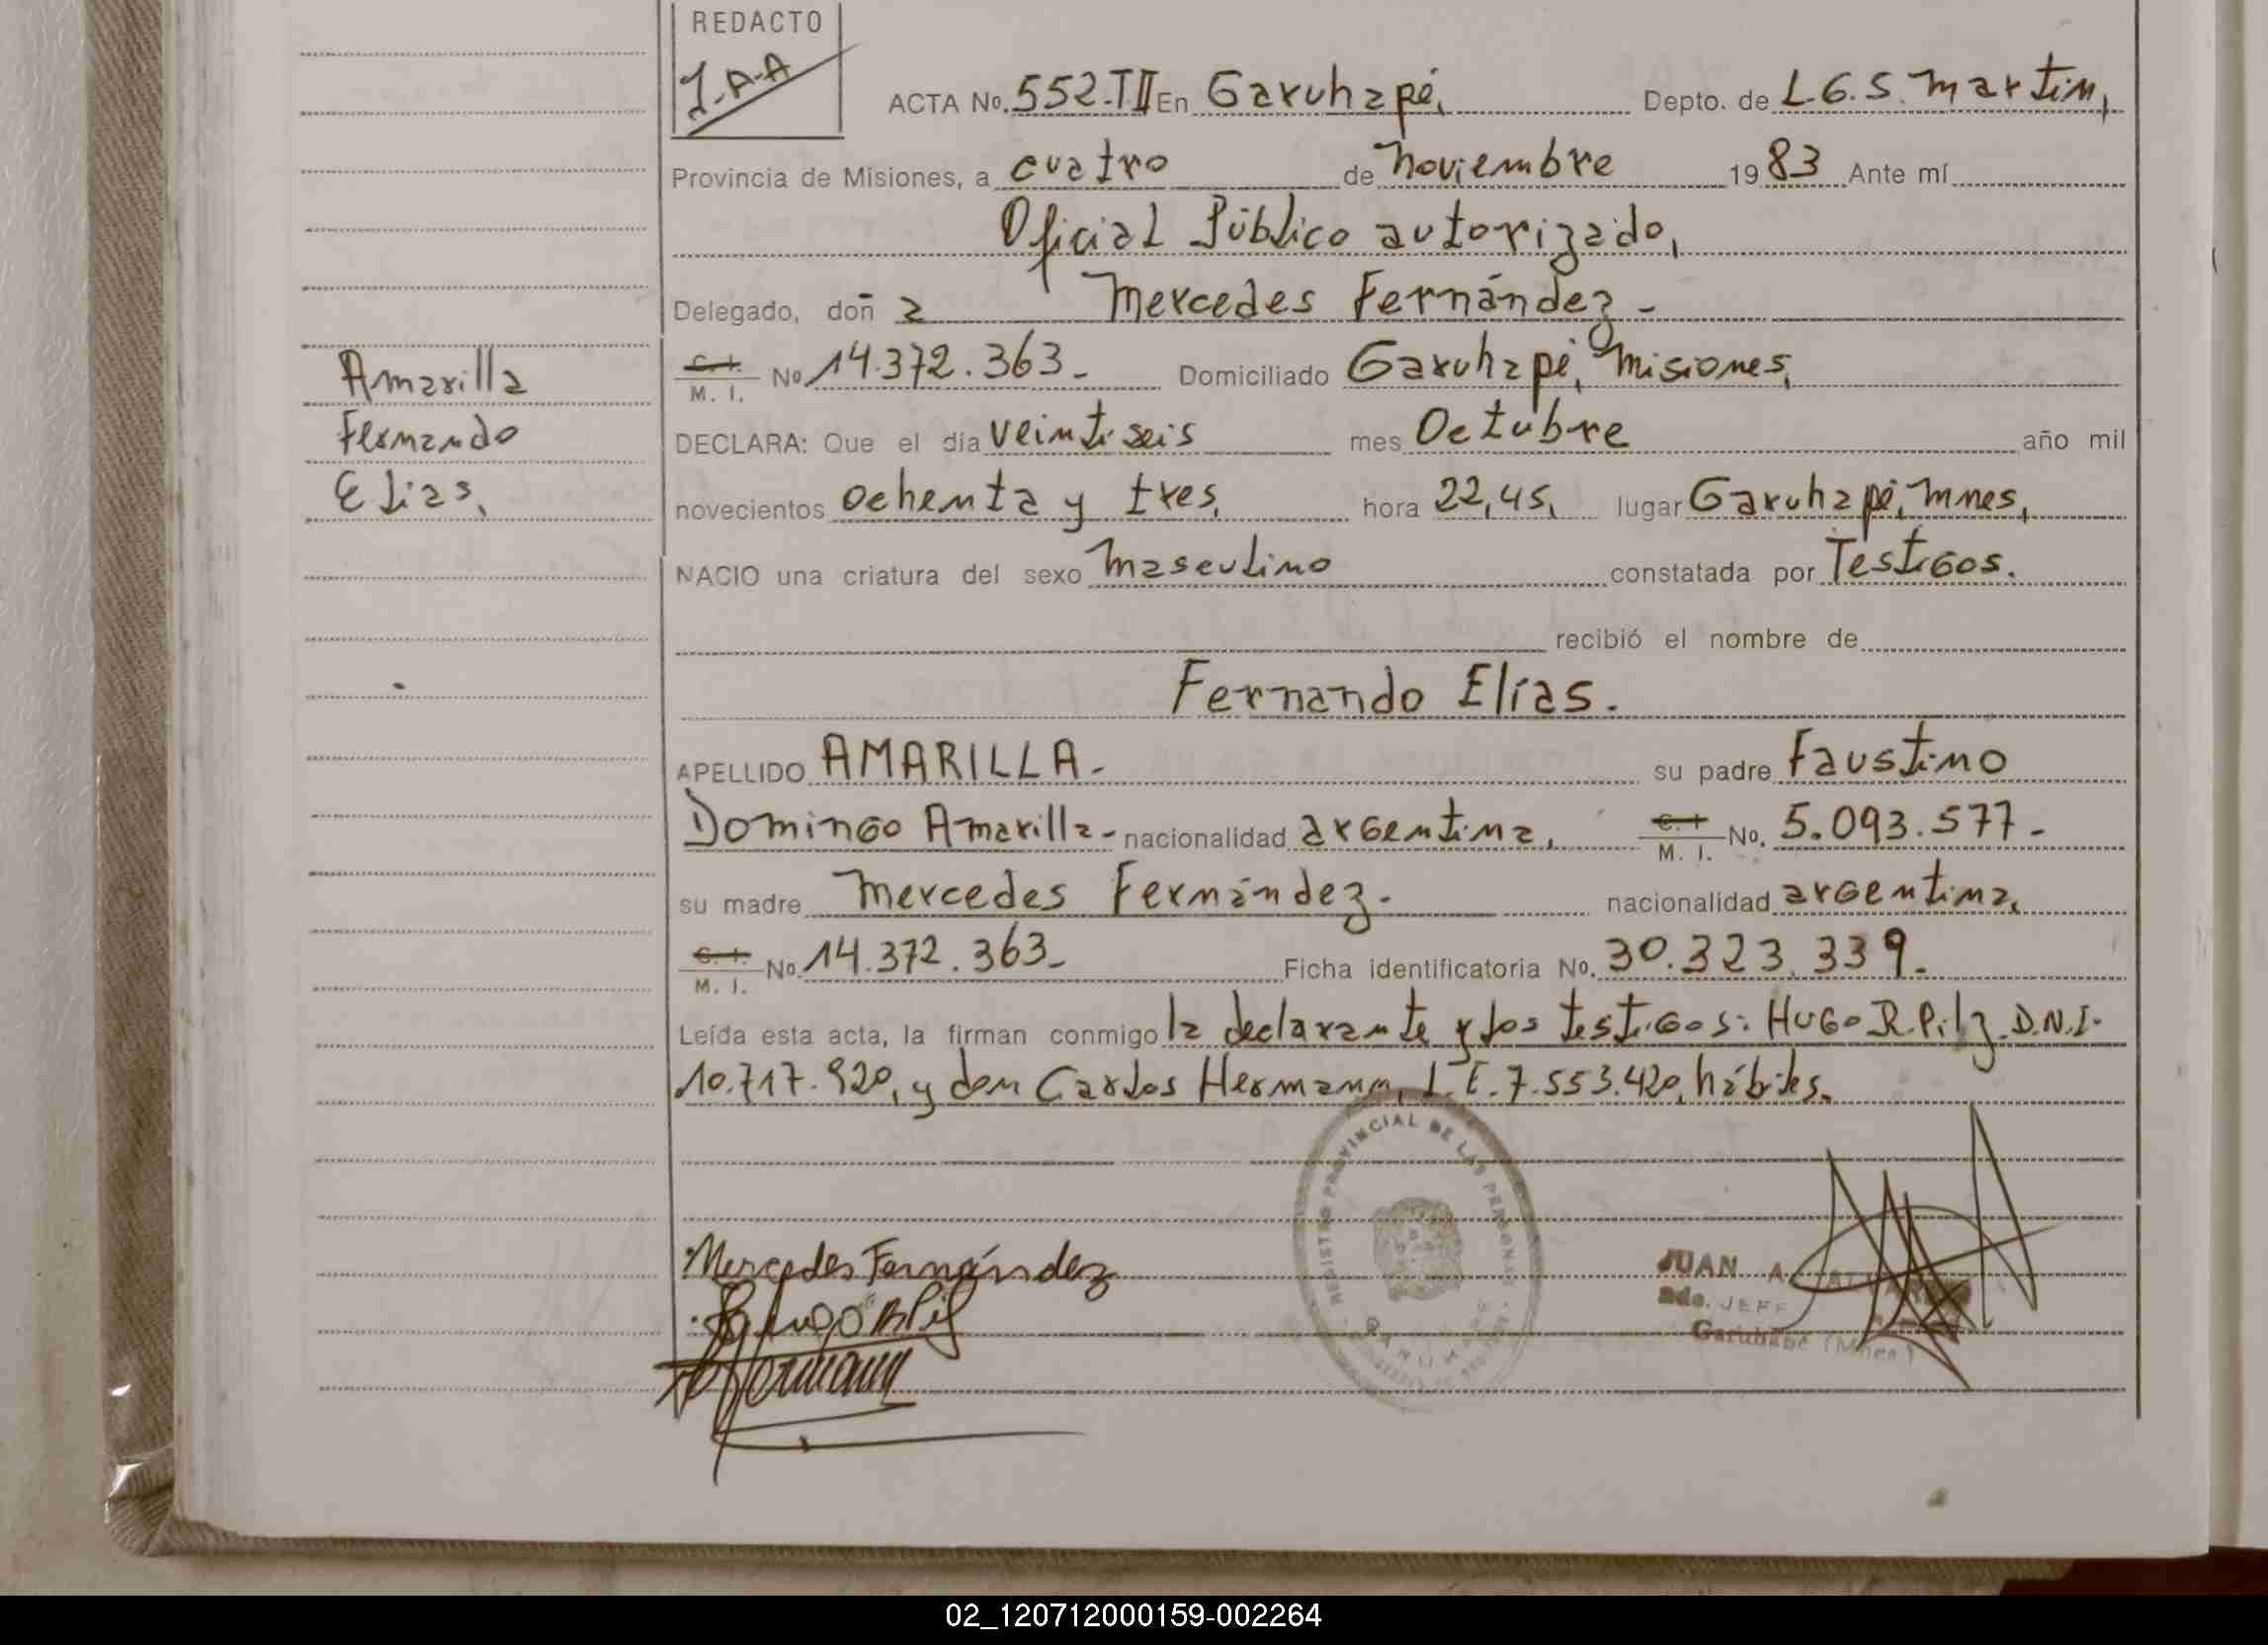 REDACTO
J-A-A
ACTA No. 552.TII En Garuhapé, Depto. de L.G.S. Martin,
Provincia de Misiones, a cuatro de noviembre 1983 Ante mí
Oficial Público autorizado,
Delegado, doña Mercedes Fernández -
C. I. M. I. No 14.372.363 - Domiciliado Garuhapé, Misiones,
DECLARA: Que el día veintiseis mes Octubre año mil
novecientos ochenta y tres, hora 22,45, lugar Garuhapé, Mnes,
NACIO una criatura del sexo masculino constatada por Testigos.
recibió el nombre de
Fernando Elías.
APELLIDO AMARILLA - su padre Faustino
Domingo Amarilla - nacionalidad argentina, C. I. M. I. No. 5.093.577 -
su madre Mercedes Fernández - nacionalidad argentina,
C. I. M. I. No. 14.372.363 - Ficha identificatoria No. 30.323.339 -
Leída esta acta, la firman conmigo la declarante y los testigos: Hugo R. Pilz D.N.I.
10.717.920, y don Carlos Hermann, L.E. 7.553.420, hábiles.
Amarilla
Fernando
Elias,
REGISTRO PROVINCIAL DE LAS PERSONAS
Mercedes Fernández
Hermann
JUAN A.
JEFE
Garuhapé (Mnes)
02_120712000159-002264